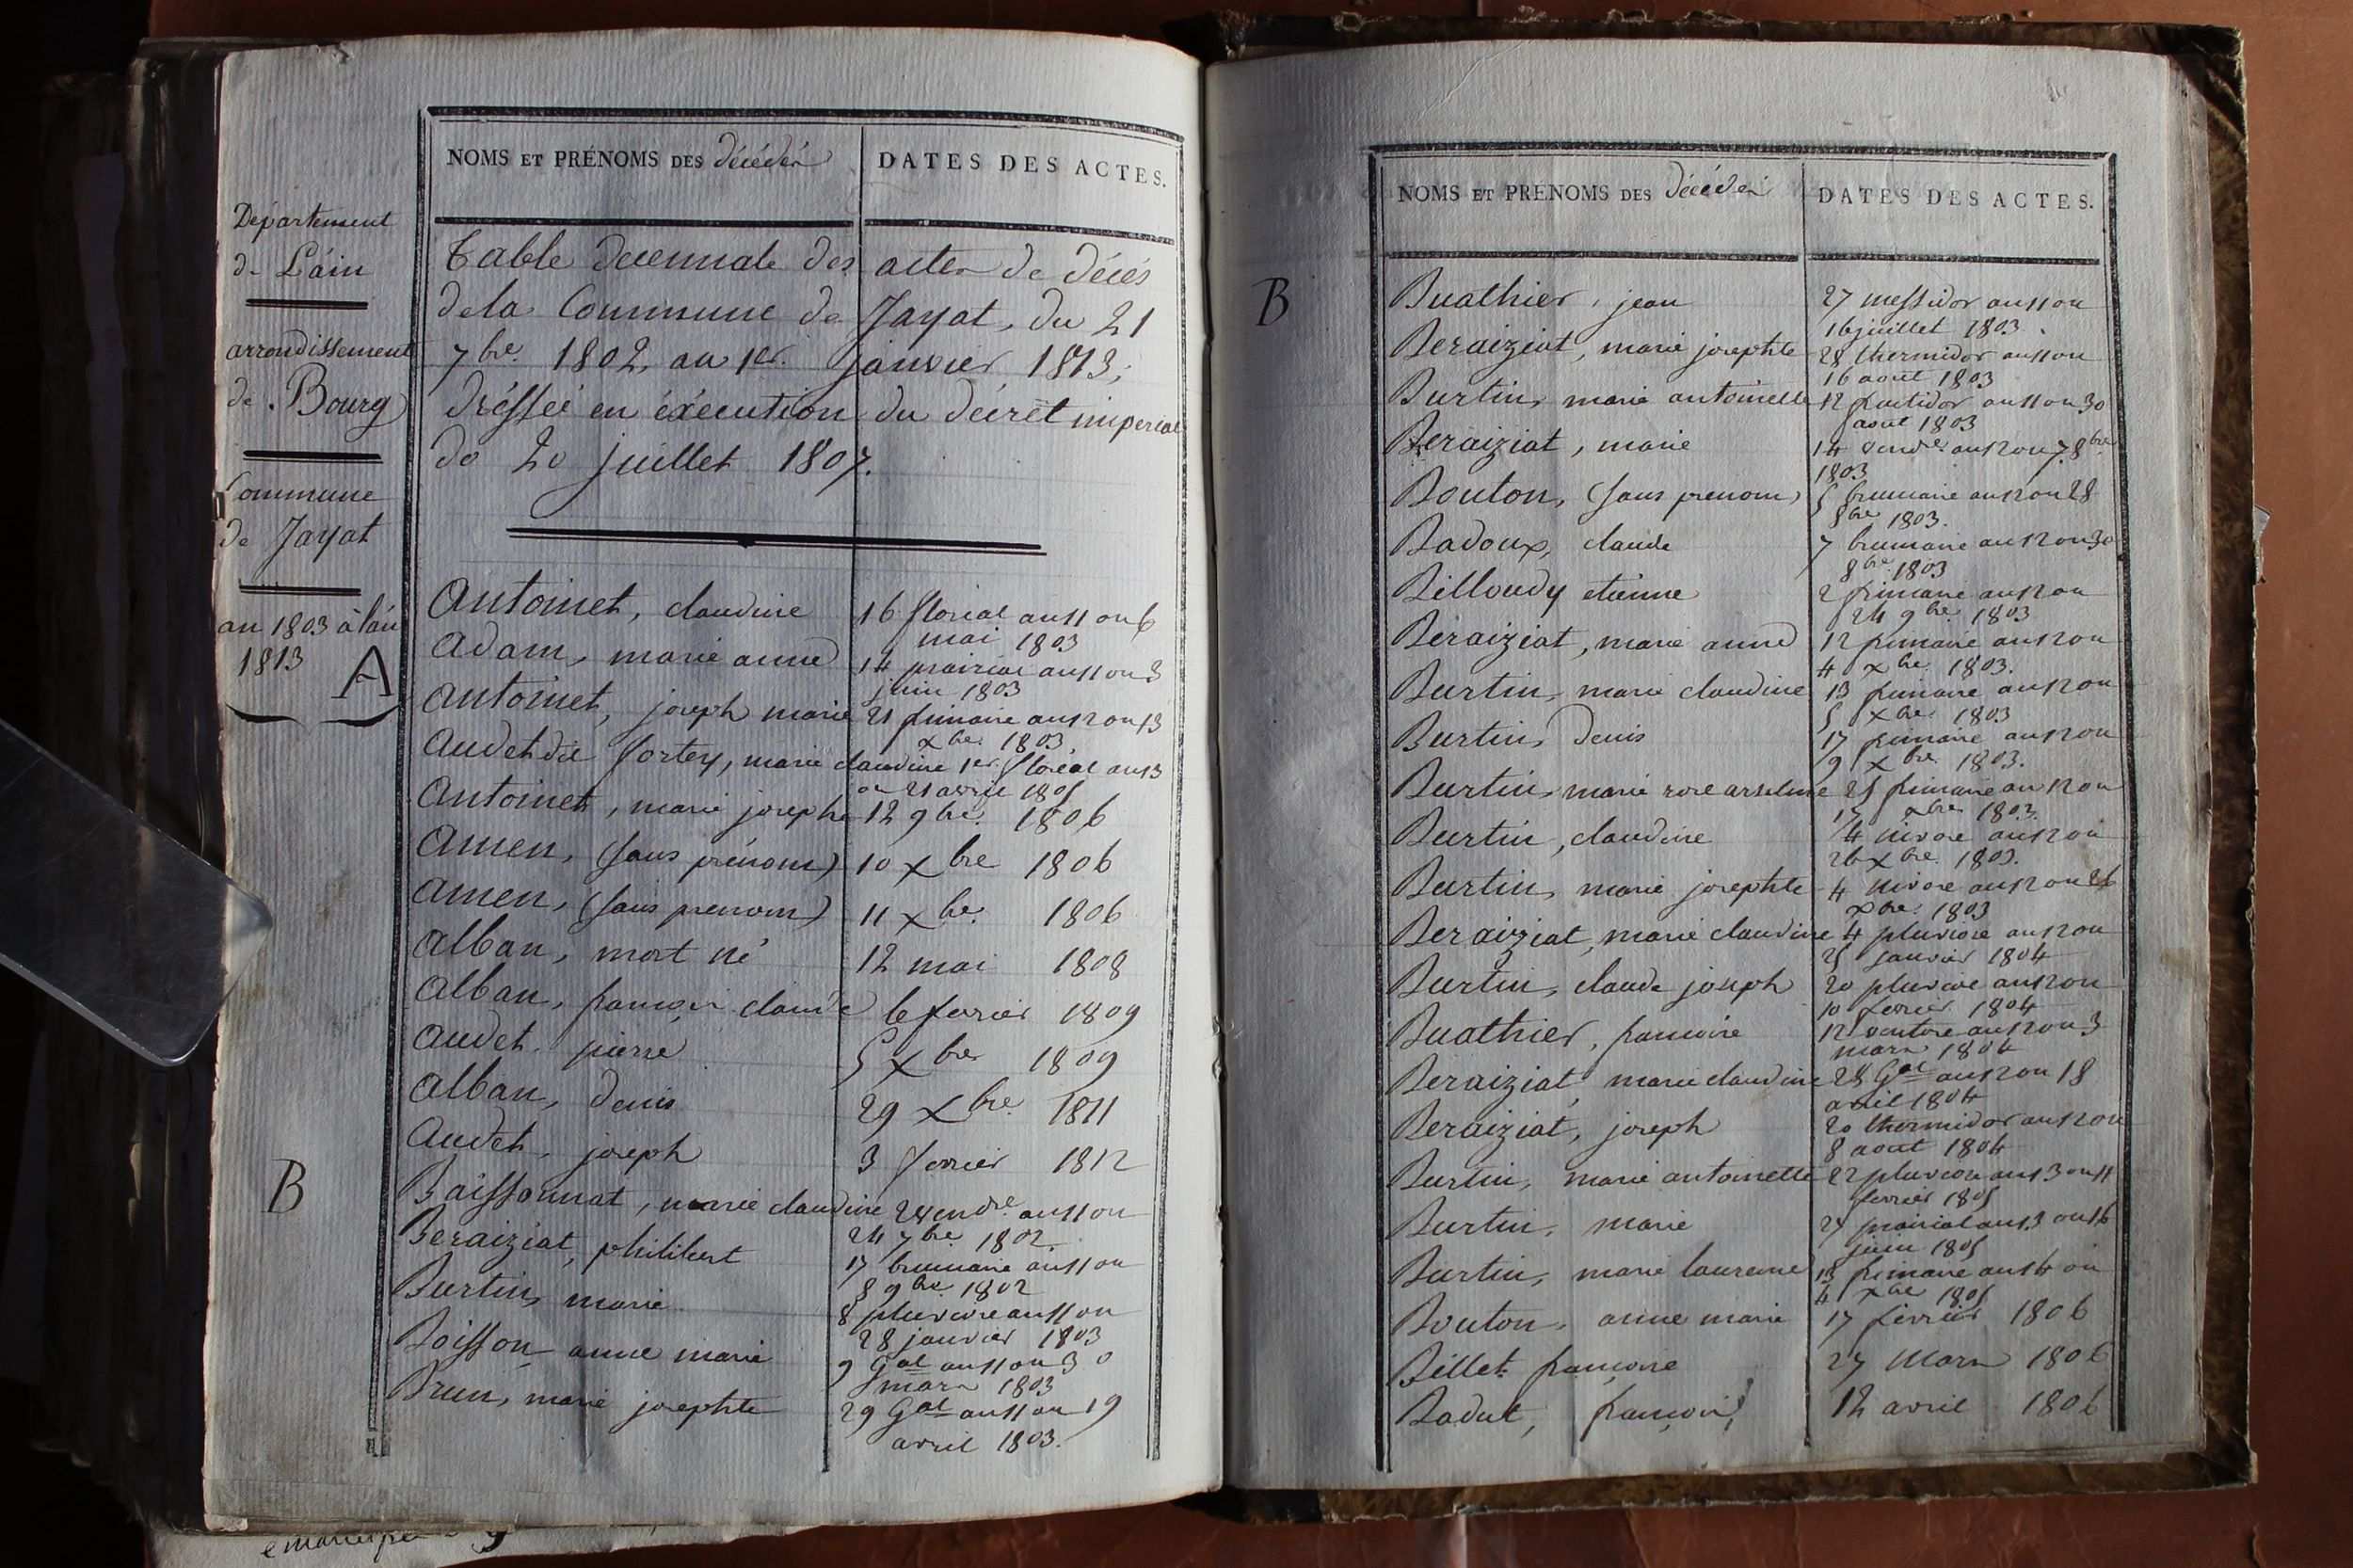 NOMS ET PRÉNOMS DES décédés
DATES DES ACTES.
Département
de L'áin
arrondissement
de Bourg
Commune
de Jayat
an 1803 à l'an
1813
Table decennale des actes de décès
de la Commune de Jayat, du 21
7bre. 1802, au 1er. janvier 1813;
dréssée en éxécution du décret imperial
do 20 juillet 1807.
A
Antoinet, claudine 16 floréal an 11 ou 6
mai 1803
Adam, marie anne 14 prairial an 11 ou 3
juin 1803
Antoinet, joseph marie 21 frimaire an 12 ou 13
xbre. 1803.
Audet die fortey, marie claudine 1er. floréal an 13
ou 21 avril 1805
Antoinet, marie josephe 12 9bre. 1806
Amen, (sans prénom) 10 xbre 1806
Amen, (sans prenom) 11 xbre. 1806
Alban, mort né 12 mai 1808
Alban, françois claude 6 fevrier 1809
Audet. pierre 5 xbre 1809
Alban, denis 29 xbre. 1811
Audet, joseph 3 fevrier 1812
B
Baissonnat, marie claudine 2 vendre. an 11 ou
24 7bre 1802.
Beraiziat, philibert 17 brumaire an 11 ou
8 9bre 1802
Burtin, marie 8 pluviose an 11 ou
28 janvier 1803
Boisson anne marie 9 Gal an 11 ou 30
mars 1803
Brun, marie josephte 29 Gal an 11 ou 19
avril 1803.
NOMS ET PRÉNOMS DES décédés
DATES DES ACTES.
B
Buathier, jean 27 messidor an 11 ou
16 juillet 1803.
Beraiziat, marie josephte 28 thermidor an 11 ou
16 aout 1803
Burtin, marie antoinette 12 fructidor an 11 ou 30
aout 1803
Beraiziat, marie 14 vendre. an 12 ou 7 8bre
1803
Bouton, (sans prenom) 5 brumaire an 12 ou 28
8bre 1803.
Badoux, claude 7 brumaire an 12 ou 30
8bre. 1803
Billoudy etienne 2 frimaire an 12 ou
24 9bre. 1803
Beraiziat, marie anne 12 frimaire an 12 ou
4 xbre. 1803.
Burtin, marie claudine 13 frimaire an 12 ou
5 xbre. 1803
Burtin, Denis 17 frimaire an 12 ou
9 xbre. 1803.
Burtin, marie rose 25 frimaire an 12 ou
17 xbre 1803.
Burtin, claudine 4 nivose an 12 ou
26 xbre. 1803.
Burtin, marie josephte 4 nivose an 12 ou 26
xbre. 1803
Beraiziat, marie claudine 4 pluviose an 12 ou
25 janvier 1804
Burtin, claude joseph 20 pluviose an 12 ou
10 fevrier 1804
Buathier, francoise 12 ventose an 12 ou 3
mars 1804
Beraiziat, marie claudine 28 Gal an 12 ou 18
avril 1804
Beraiziat, joseph 20 thermidor an 12 ou
8 aout 1804
Burtin, marie antoinette 22 pluviose an 13 ou 11
fevrier 1805
Burtin, marie 27 prairial an 13 ou 16
juin 1805
Burtin, marie laurence 13 frimaire an 14 ou
4 xbre 1805
Bouton, anne marie 17 fevrier 1806
Billet françoise 27 Mars 1806
Badut, françois 12 avril 1806